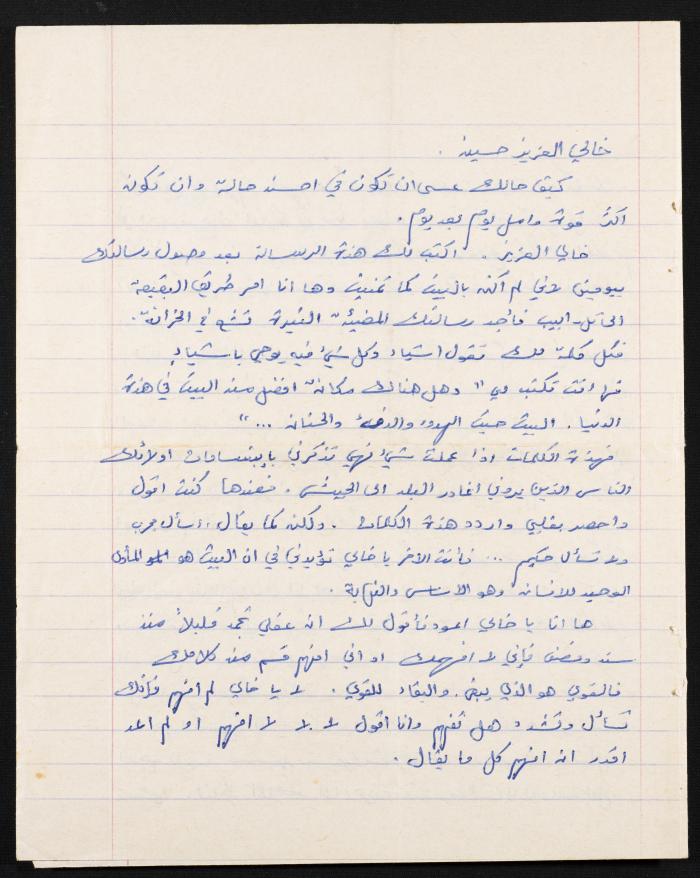 خالي العزيز حسين .
كيف حالك عسى ان تكون في احسن حالة وان تكون
اكثر قوة وامل يوم بعد يوم .
خالي العزيز . اكتب لك هذة الرسالة بعد وصول رسالتك
بيومين لاني لم اكن بالبيت كما تمنيت وها انا امر طريق
الى البيت فأجد رسالتك المضيئة النيرة تشع في الخزانة .
فكل كلمة لك تقول اشياء وكل شيء فيه يوحي باشياء
فها انت تكتب لي " وهل هناك مكانة افضل من البيت في هذة
الدنيا . البيت حيث الهدوء والدفء والحنان ... "
فهذة الكلمات اذا عملت شيء فهي تذكرني بإبتسامات اولائك
الناس الذين يروني اغادر البلد الى الجيش . فعندها كنت اقول
واحصر بقلبي واردد هذة الكلمات . ولكن كما يقال ، إسأل مجرب
ولا تسأل حكيم ... فأنت الاخر يا خالي تؤيدني في ان البيت هو
الوحيد للانسان وهو الاساس والنهاية .
ها انا يا خالي اعود فأقول لك ان عقلي تجمد قليلاً منذ
سنة ونصف فإني لا افهمك او اني افهم قسم من كلامك
فالقوي هو الذي يبقى . والبقاء للقوي . لا يا خالي لم افهم فإنك
تسأل وتشدد هل تفهم وانا اقول لا لا لا افهم او لم اعد
اقدر ان افهم كل ما يقال .